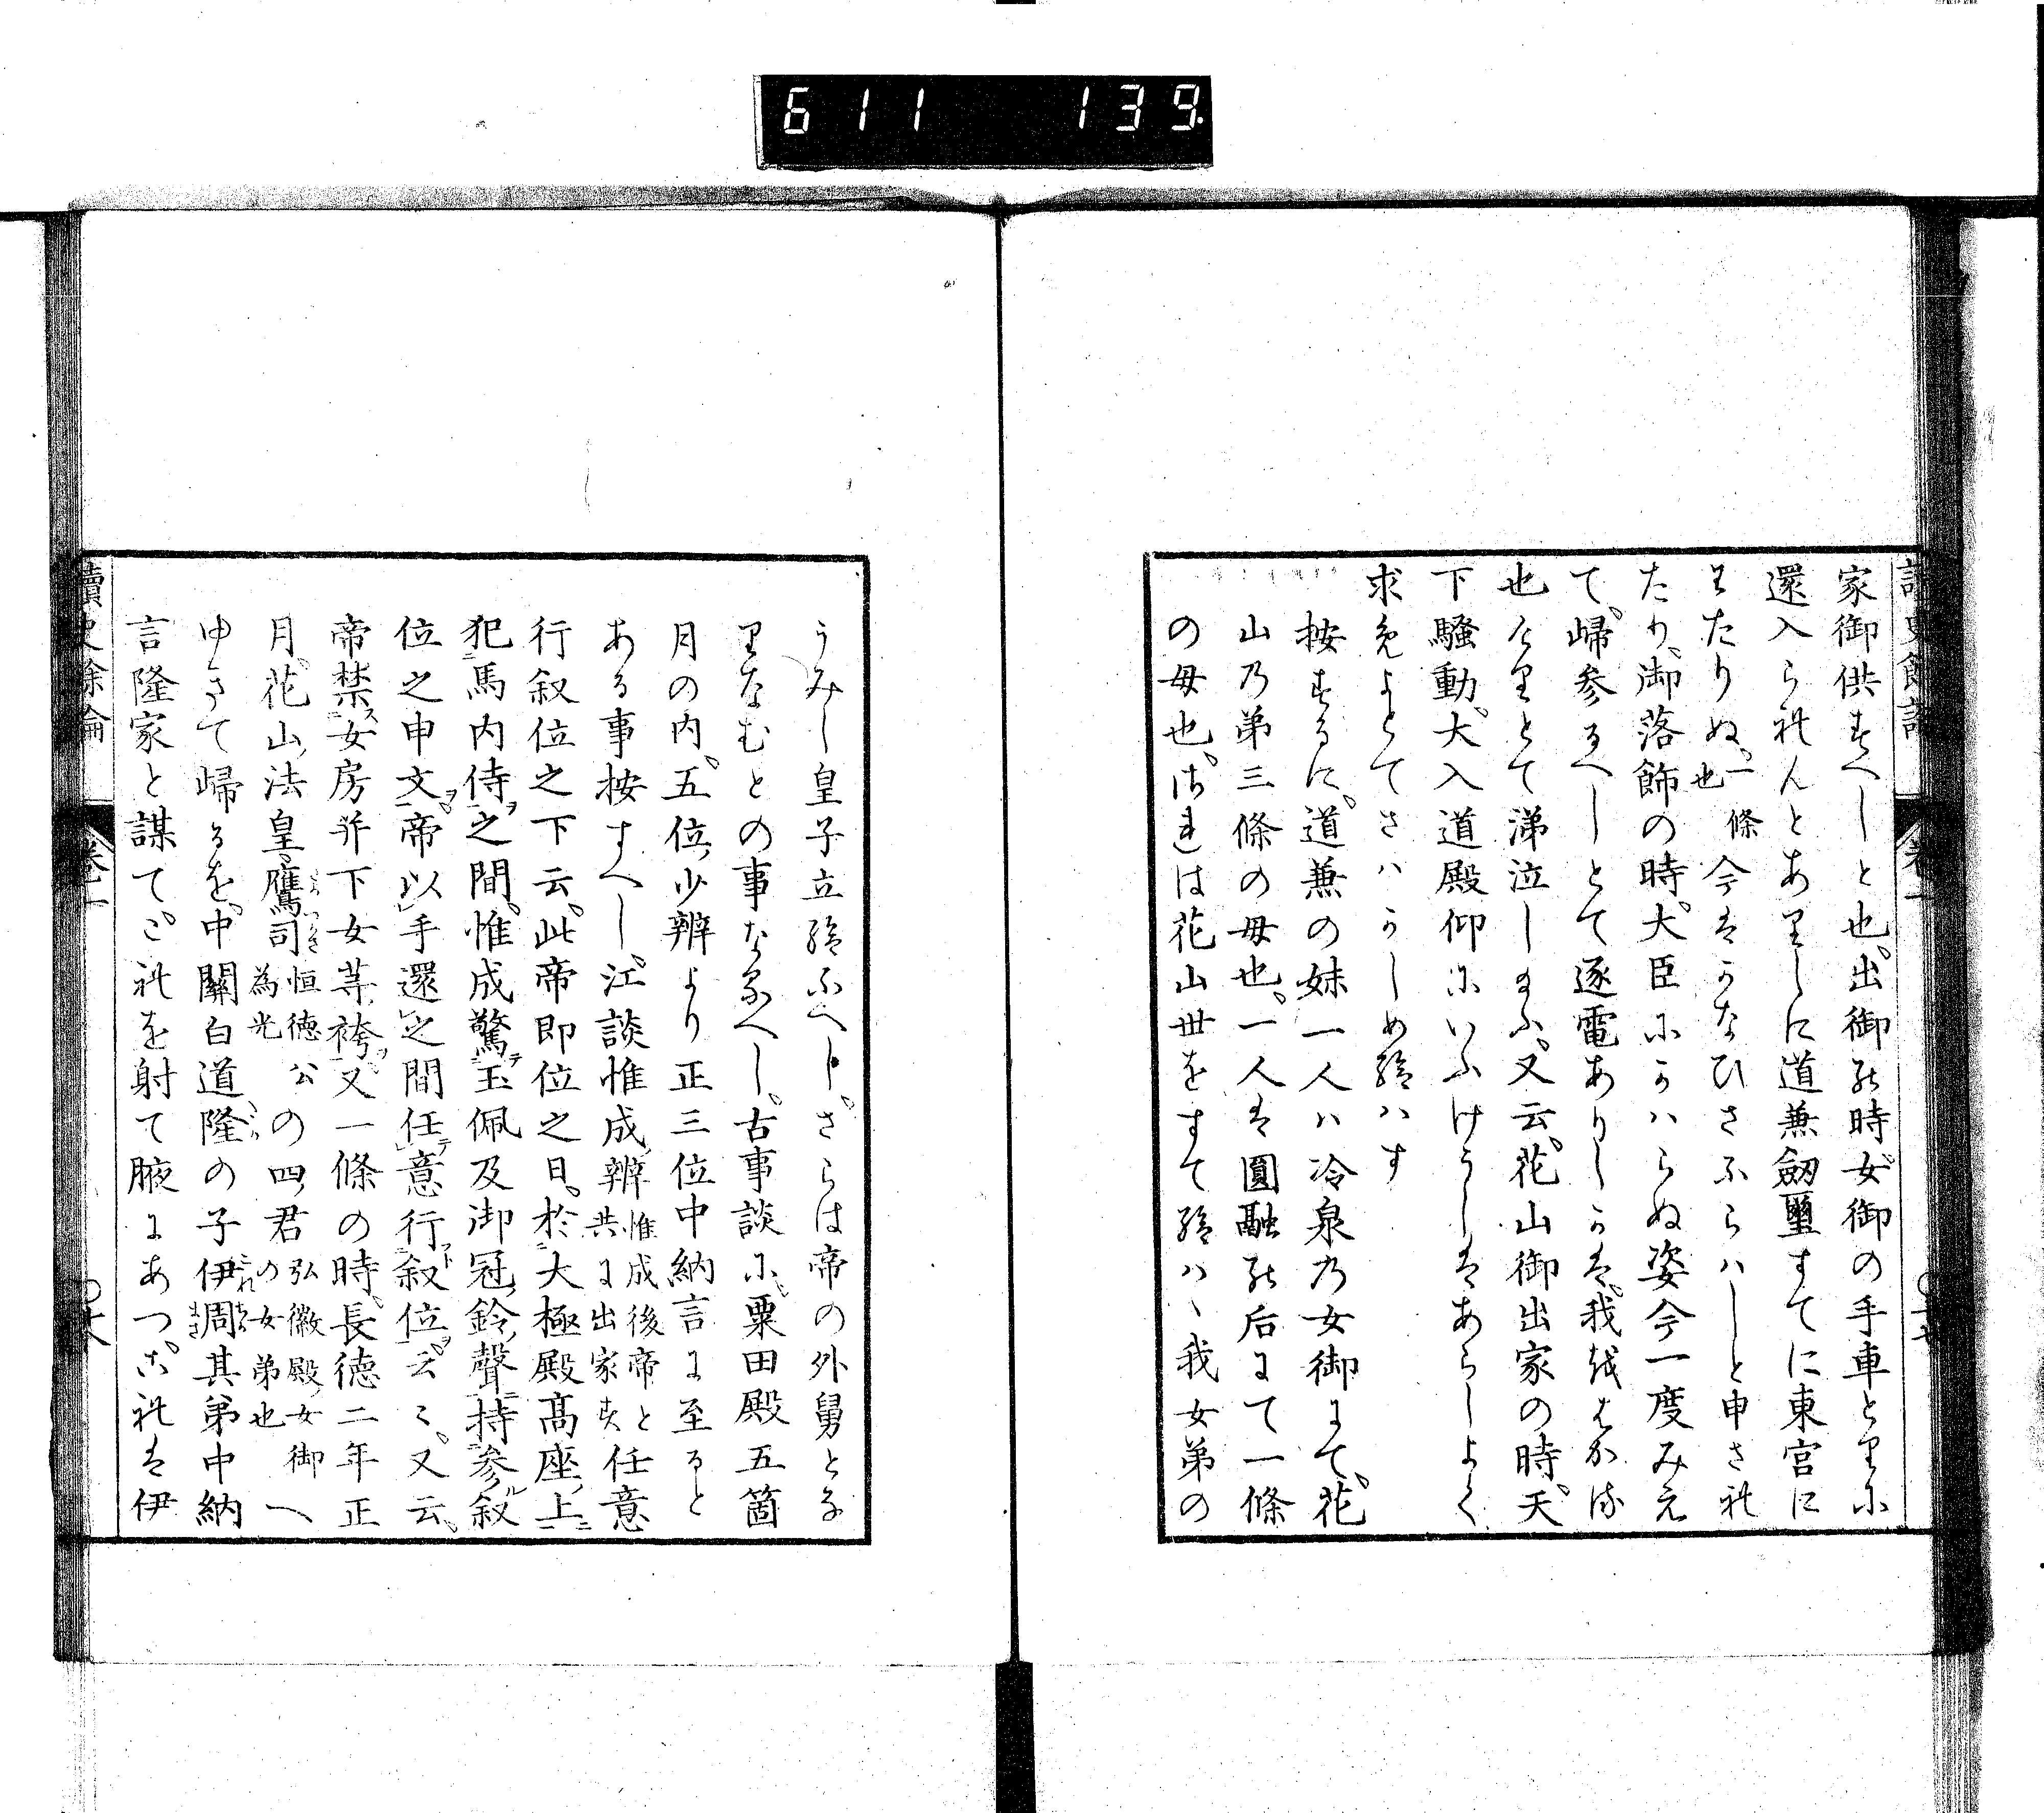 611 139
家御供すへしと也。出御の時女御の手車とりに
還入られんとありしに道兼劔璽すてに東宮に
わたりぬ。一條也今はかなひさふらはしと申され
たり。御落飾の時。大臣にかはらぬ姿今一度みえ
て。帰参るへしとて逐電ありしかは。我をはかる
也けりとて涕泣し給ふ。又云。花山御出家の時。天
下騒動。大入道殿仰にいふけうしはあらしよく
求めよとてさはかしめ給はす
按するに。道兼の妹一人は冷泉の女御にて。花
山の弟三條の母也。一人は圓融の后にて一條
の母也。されは花山世をすて給はゝ我女弟の
うみし皇子立給ふへし。さらは帝の外舅とな
りなむとの事なるへし。古事談に。粟田殿五箇
月の内。五位少辨より正三位中納言に至ると
ある事按すへし。江談惟成辨惟成後帝と共に出家す任意
行叙位之下云。此帝即位之日。於大極殿高座上
犯馬内侍之間。惟成驚玉佩及御冠鈴聲持参叙
位之申文。帝以手還之間任意行叙位云々。又云。
帝禁女房并下女等袴。又一條の時。長徳二年正
月。花山法皇鷹司恒徳公為光の四君弘徽殿女御の女弟也へ
ゆきて帰るを。中關白道隆の子伊周其弟中納
言隆家と謀て。これを射て腋にあつ。これは伊
讀史餘論 卷一